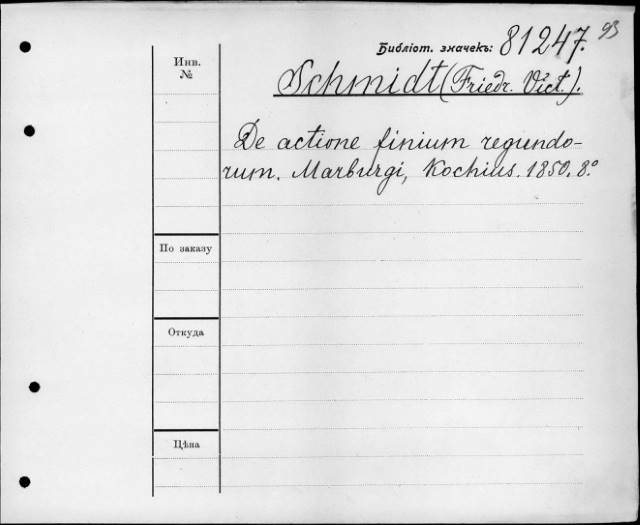 93
Библіот. значекъ: 81247.
Инв.
№
Schmidt (Friedr. Vict.).
De actione finium regundo-
rum. Marburgi, Kochius. 1850. 8.°
По заказу
Откуда
Цѣна